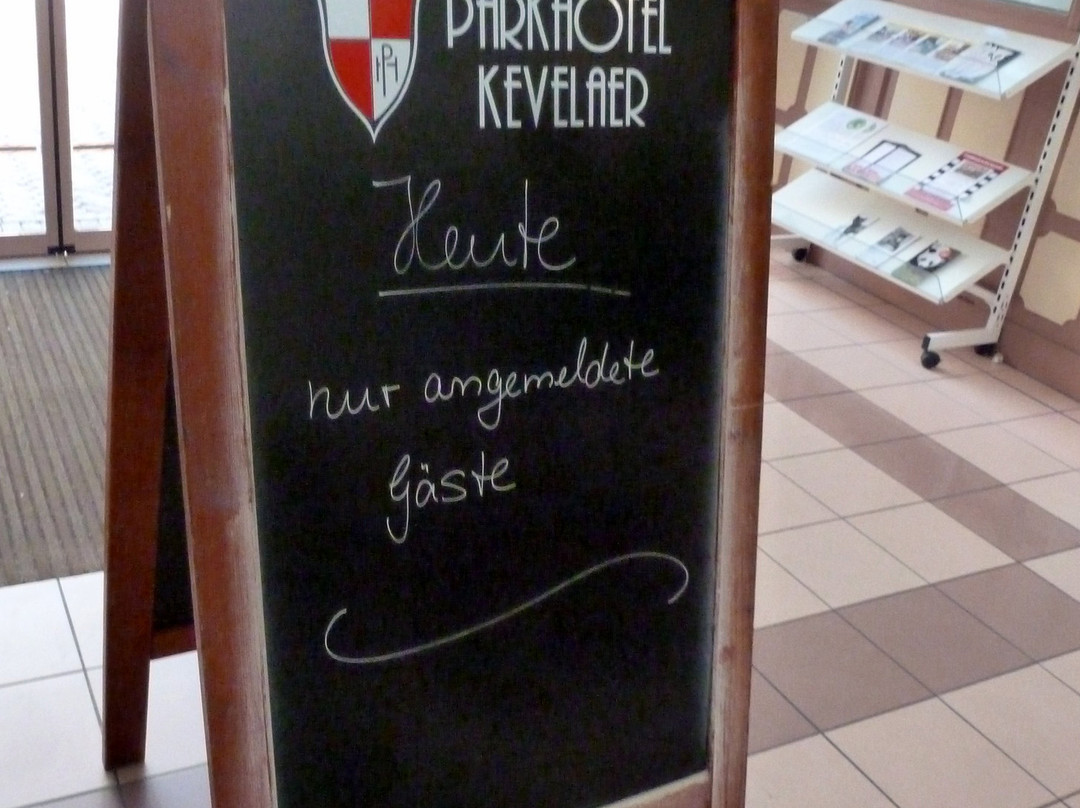 PARKHOTEL
KEVELAER
Heute
nur angemeldete
Gäste